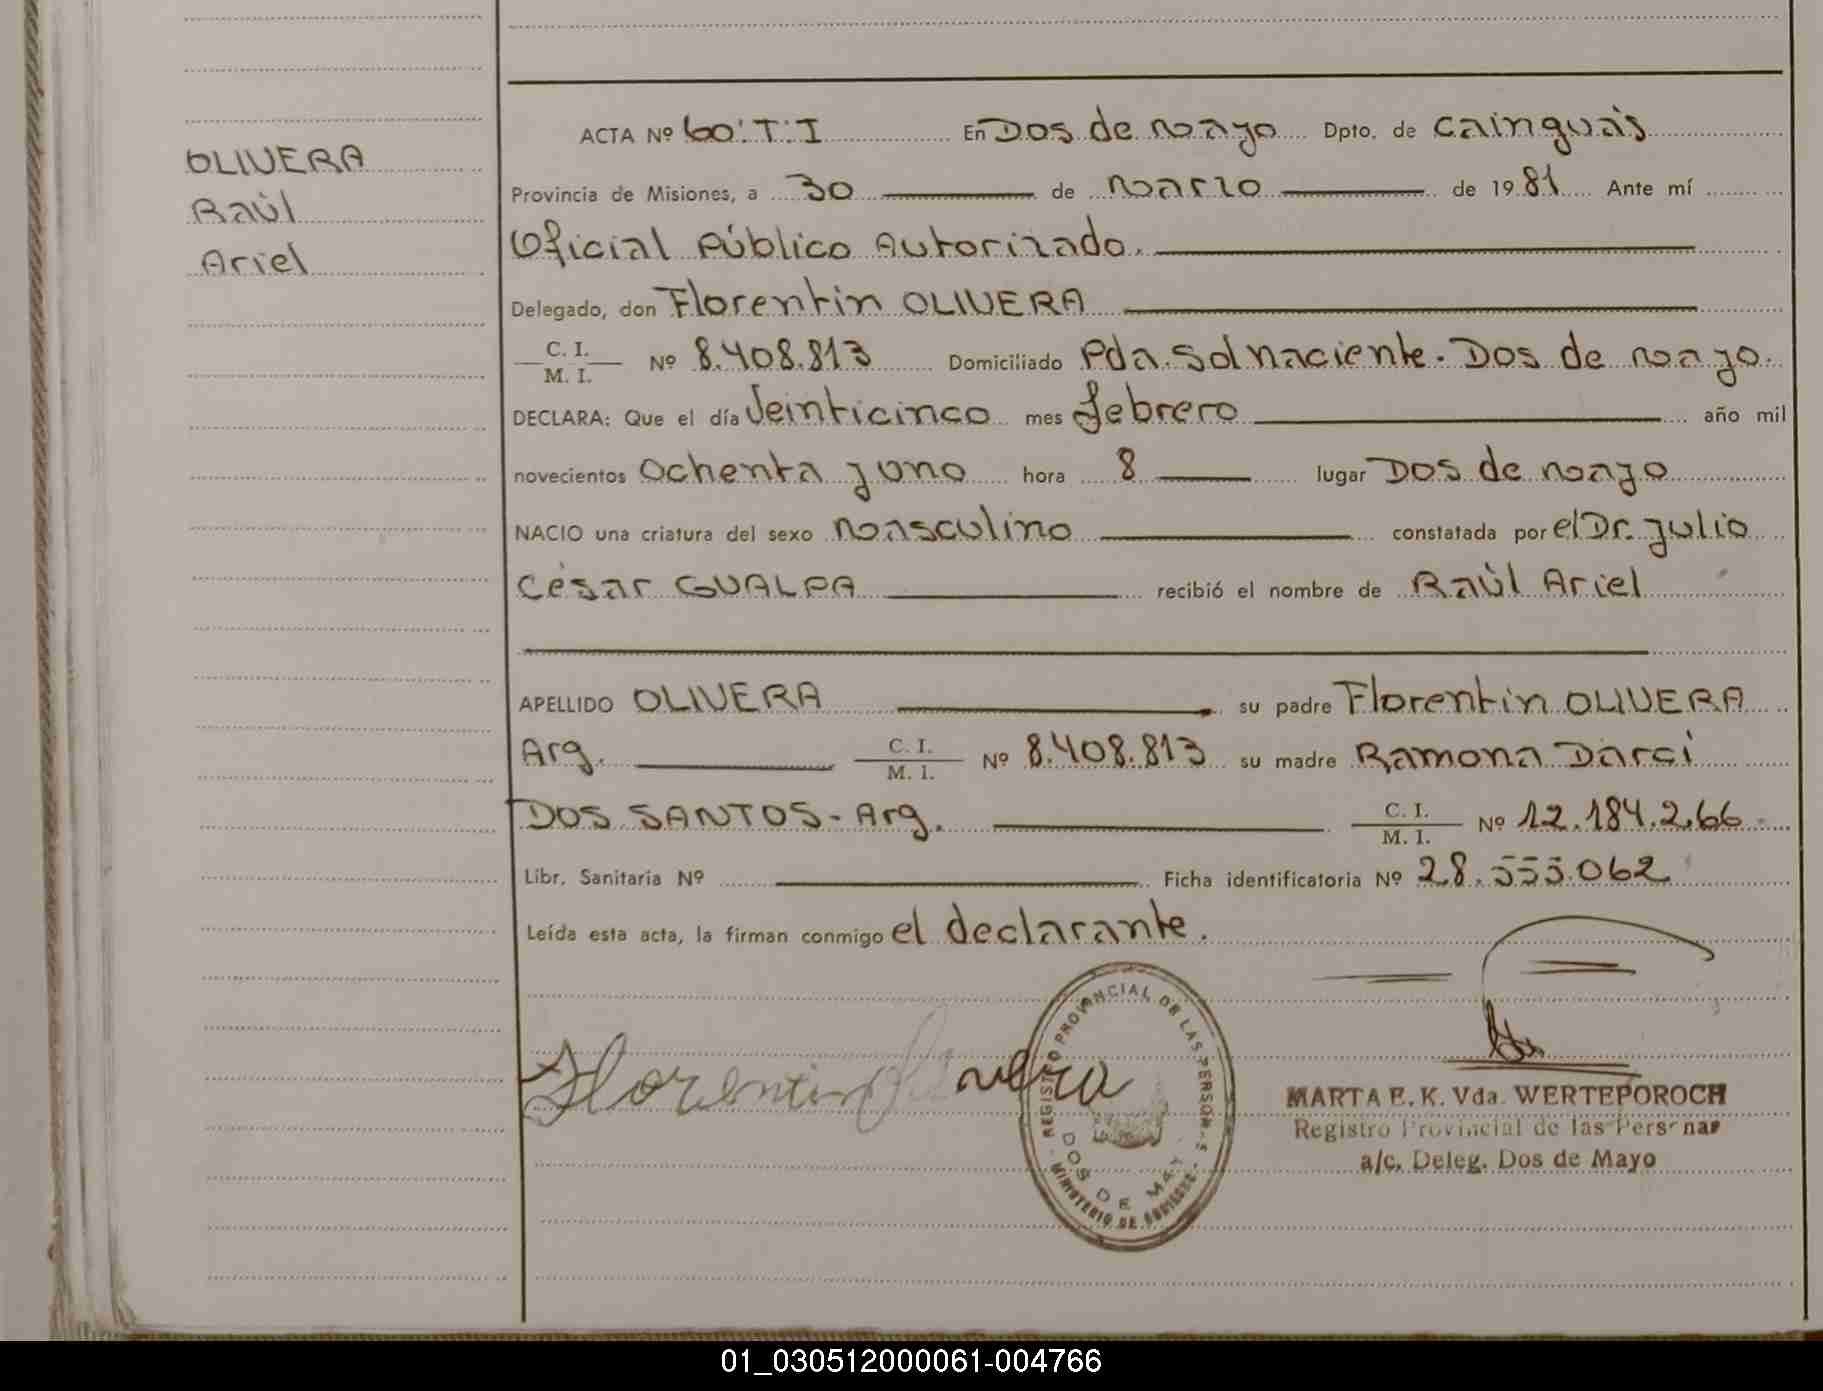 OLIVERA
Raúl
Ariel
ACTA Nº 60:T:I En Dos de mayo Dpto. de Cainguás
Provincia de Misiones, a 30 de marzo de 1981 Ante mí
Oficial Público Autorizado.
Delegado, don Florentin OLIVERA
C. I.
M. I. Nº 8.408.813 Domiciliado Pda. Sol naciente. Dos de mayo.
DECLARA: Que el día Veinticinco mes febrero año mil
novecientos ochenta y uno hora 8 lugar Dos de mayo
NACIO una criatura del sexo masculino constatada por el Dr. Julio
César GUALPA recibió el nombre de Raúl Ariel
APELLIDO OLIVERA su padre Florentin OLIVERA
Arg. C. I.
M. I. Nº 8.408.813 su madre Ramona Darci
DOS SANTOS - Arg. C. I.
M. I. Nº 12.184.266
Libr. Sanitaria Nº Ficha identificatoria Nº 28.555.062
Leída esta acta, la firman conmigo el declarante.
Florentin Olivera
REGISTRO PROVINCIAL DE LAS PERSONAS
DOS DE MAYO
MINISTERIO DE GOBIERNO
MARTA E. K. Vda. WERTEPOROCH
Registro Provincial de las Personas
a/c. Deleg. Dos de Mayo
01_030512000061-004766